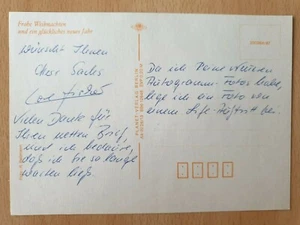 Frohe Weihnachten
und ein glückliches neues Jahr
wünscht Ihnen
Vielen Dank für
Ihren netten Brief,
und ich bedaure,
daß ich Sie so lange
warten ließ.
Da ich keine
Autogramm-Fotos habe,
lege ich ein Foto von
einem Life-Auftritt bei.
PLANET VERLAG BERLIN